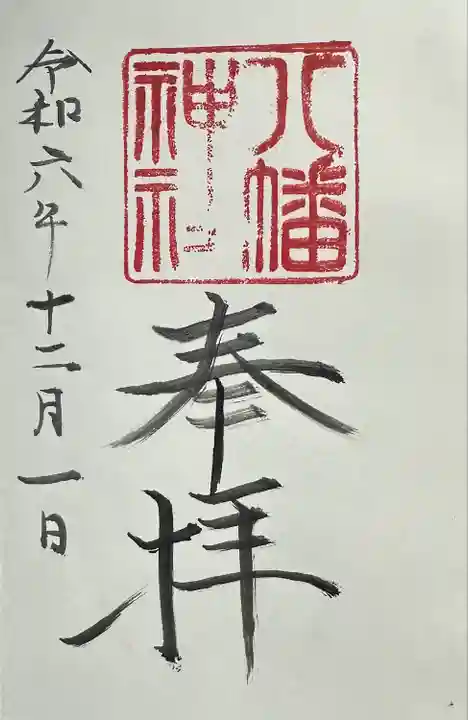 八幡
神社
奉拝
令和六年十二月一日